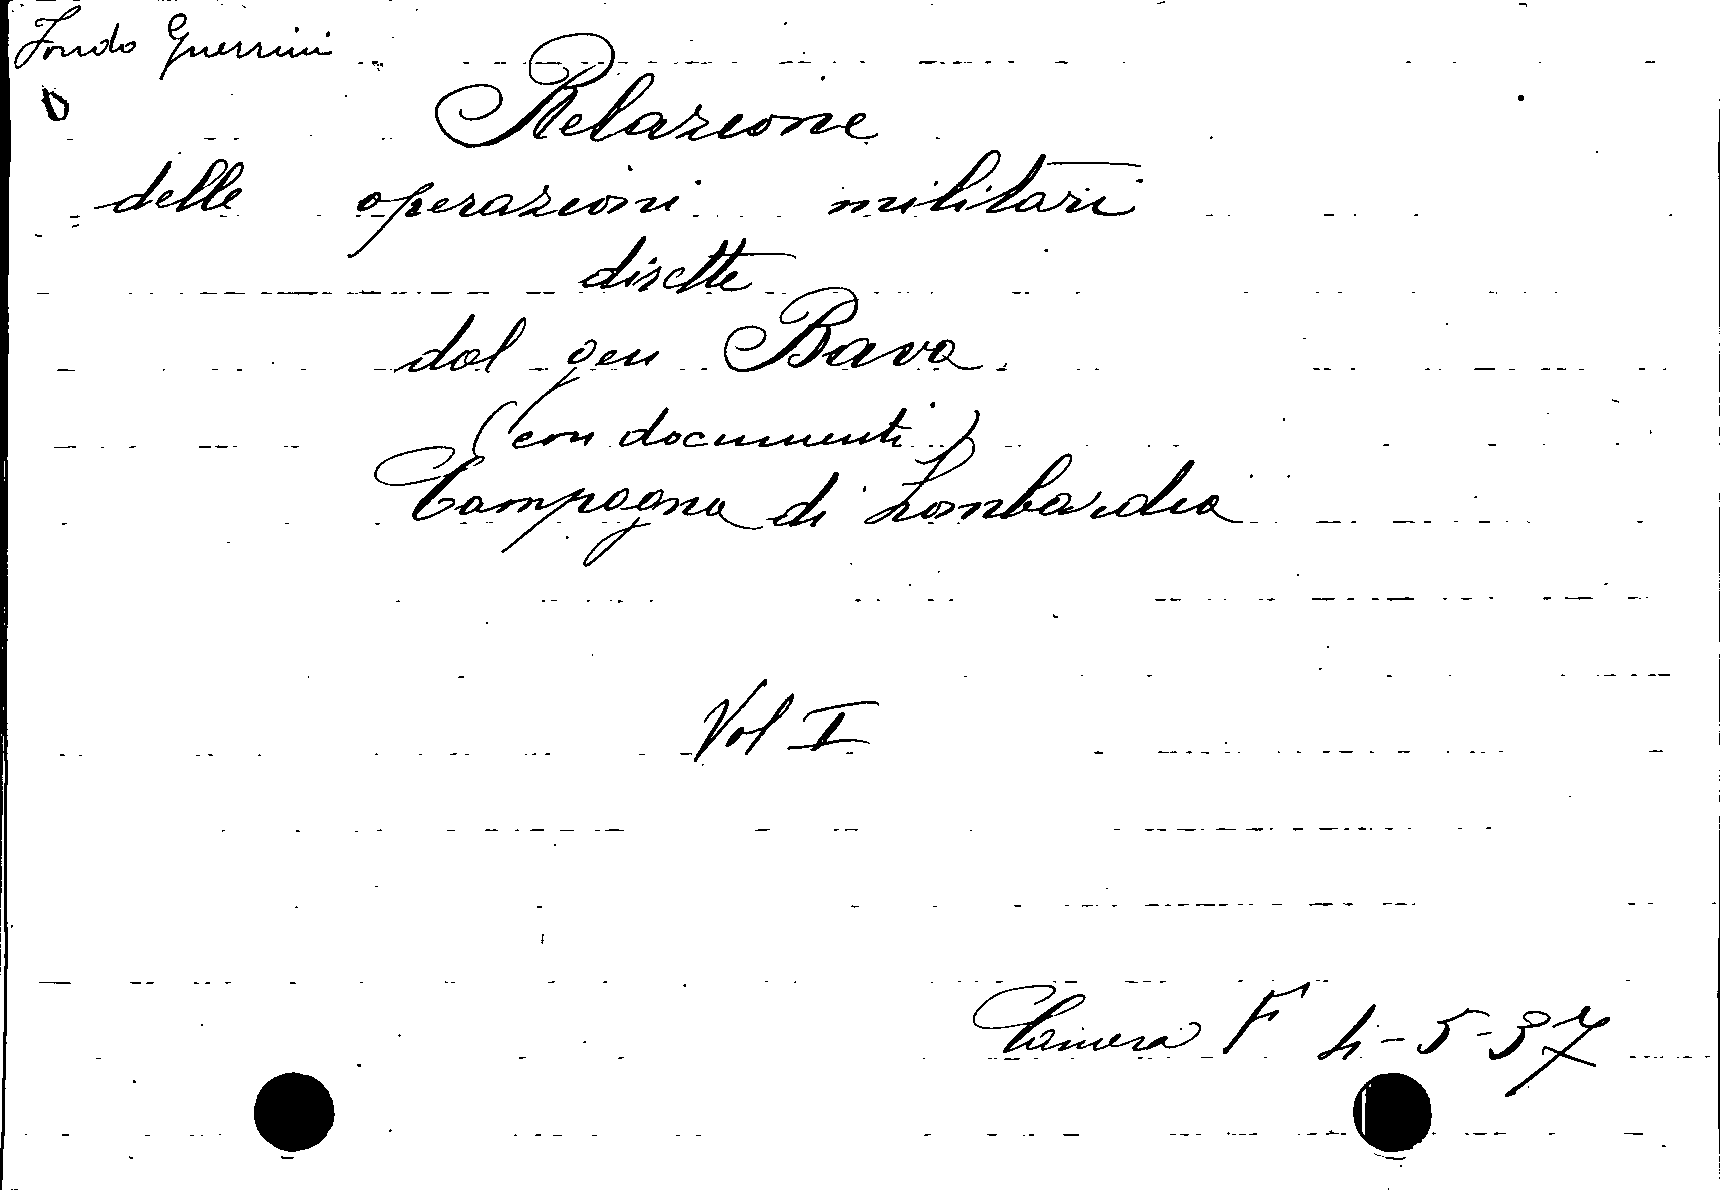 Fondo Guerrini
D
Relazione
delle operazioni militari
dirette
dal gen Bava
(con documenti)
Campagna di Lombardia
Vol I
Camera F 4-5-37